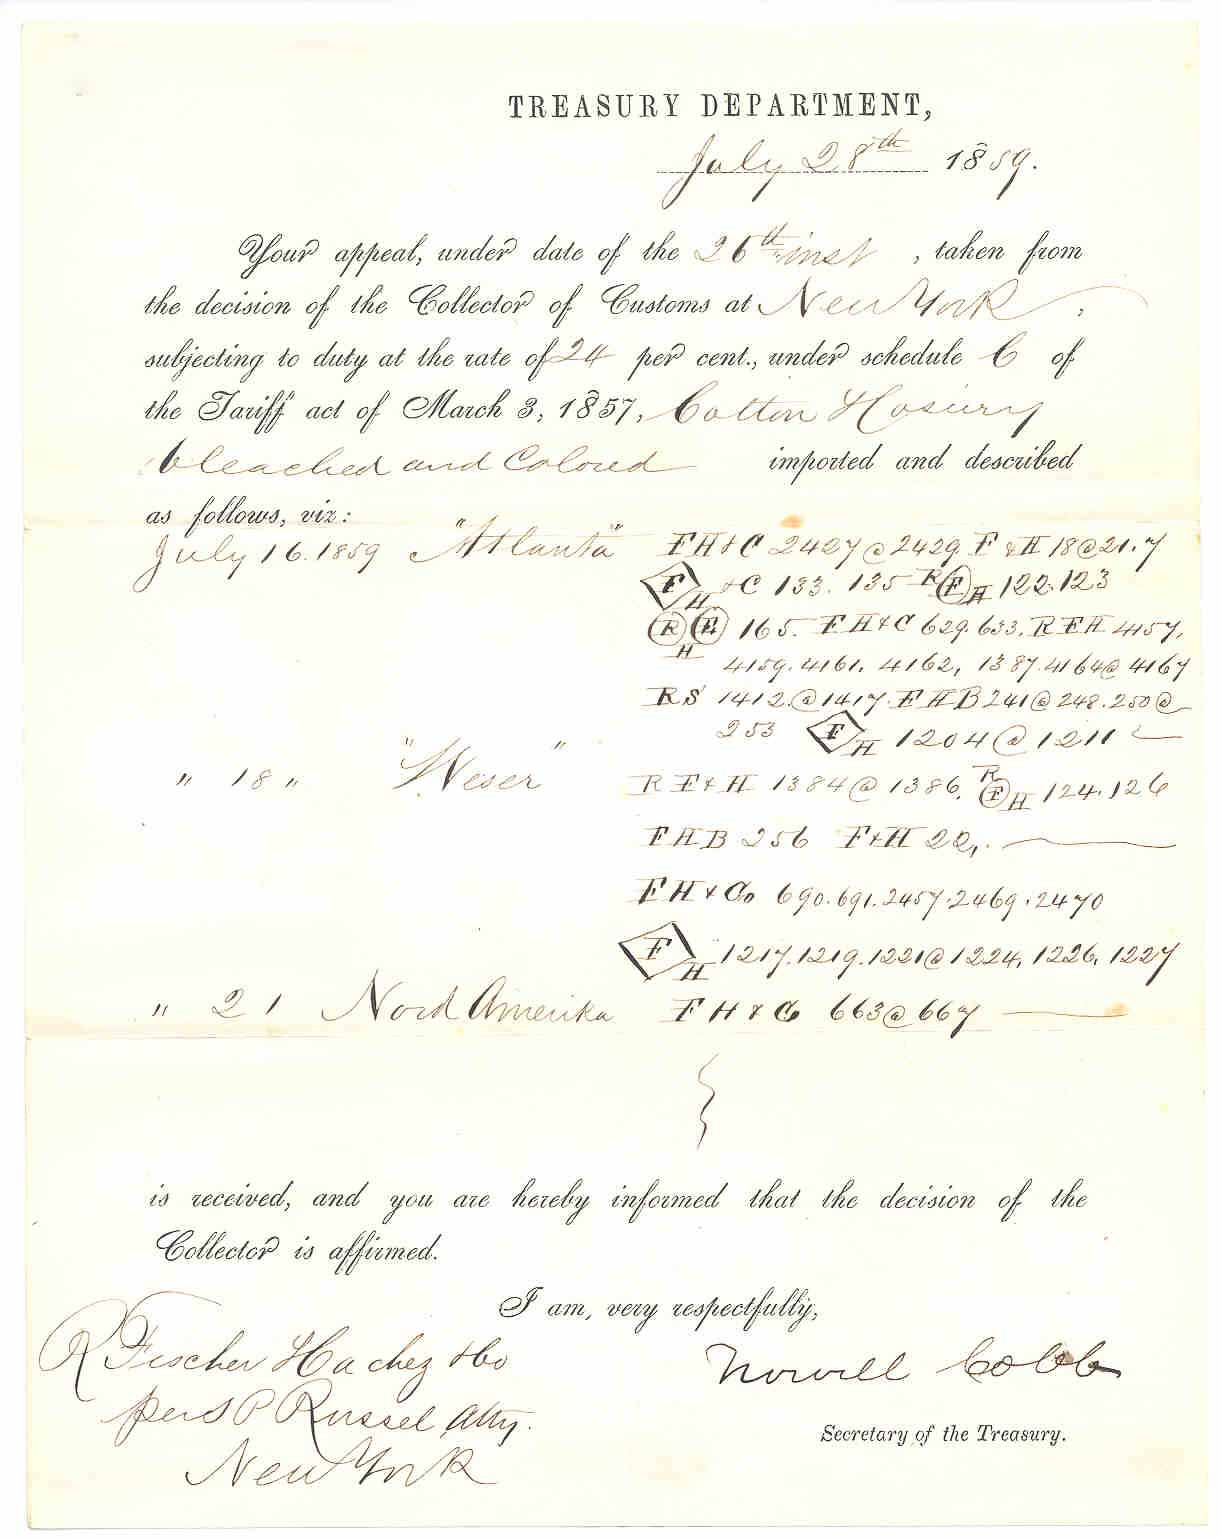 TREASURY DEPARTMENT,
July 28th 1859.
Your appeal, under date of the 26th inst, taken from
the decision of the Collector of Customs at New York,
subjecting to duty at the rate of 24 per cent., under schedule C of
the Tariff act of March 3, 1857, Cotton Hosiery
bleached and Colored imported and described
as follows, viz:
July 16. 1859 "Atlanta" F H & C 2427 @ 2429. F & H 18 @ 21. 7
F H & C 133. 135 R F H 122. 123
R F H 165. F H & C 629. 633. R F H 4157,
4159. 4161. 4162, 1387. 4164 @ 4167
RS 1412. @ 1417. F H B 241 @ 248. 250 @
253 F H 1204 @ 1211
" 18 " "Weser" R F & H 1384 @ 1386. R F H 124. 126
F H B 256 F & H 22,.
F H & Co 690. 691. 2457. 2469. 2470
F H 1217. 1219. 1221 @ 1224, 1226, 1227
" 21 Nord Amerika F H & C 663 @ 667
is received, and you are hereby informed that the decision of the
Collector is affirmed.
I am, very respectfully,
R Fischer Hachez & Co Howell Cobb
per S P Russel Atty.
New York
Secretary of the Treasury.